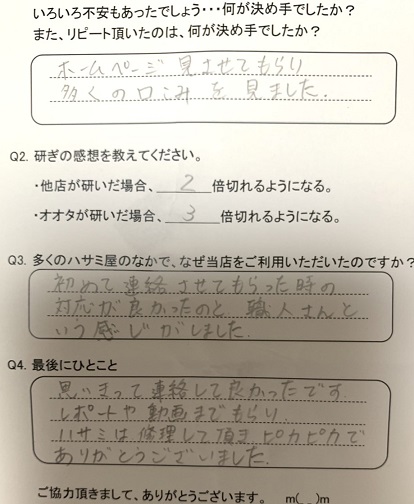 いろいろ不安もあったでしょう・・・何が決め手でしたか？
また、リピート頂いたのは、何が決め手でしたか？
ホームページ見させてもらり
多くの口こみを見ました.
Q2. 研ぎの感想を教えてください。
・他店が研いだ場合、2倍切れるようになる。
・オオタが研いだ場合、3倍切れるようになる。
Q3. 多くのハサミ屋のなかで、なぜ当店をご利用いただいたのですか？
初めて連絡させてもらった時の
対応が良かったのと 職人さんと
いう感じがしました.
Q4. 最後にひとこと
思いきって連絡して良かったです.
レポートや動画までもらり.
ハサミは修理して頂き ピカピカで
ありがとうございました.
ご協力頂きまして、ありがとうございます。 m(_ _)m